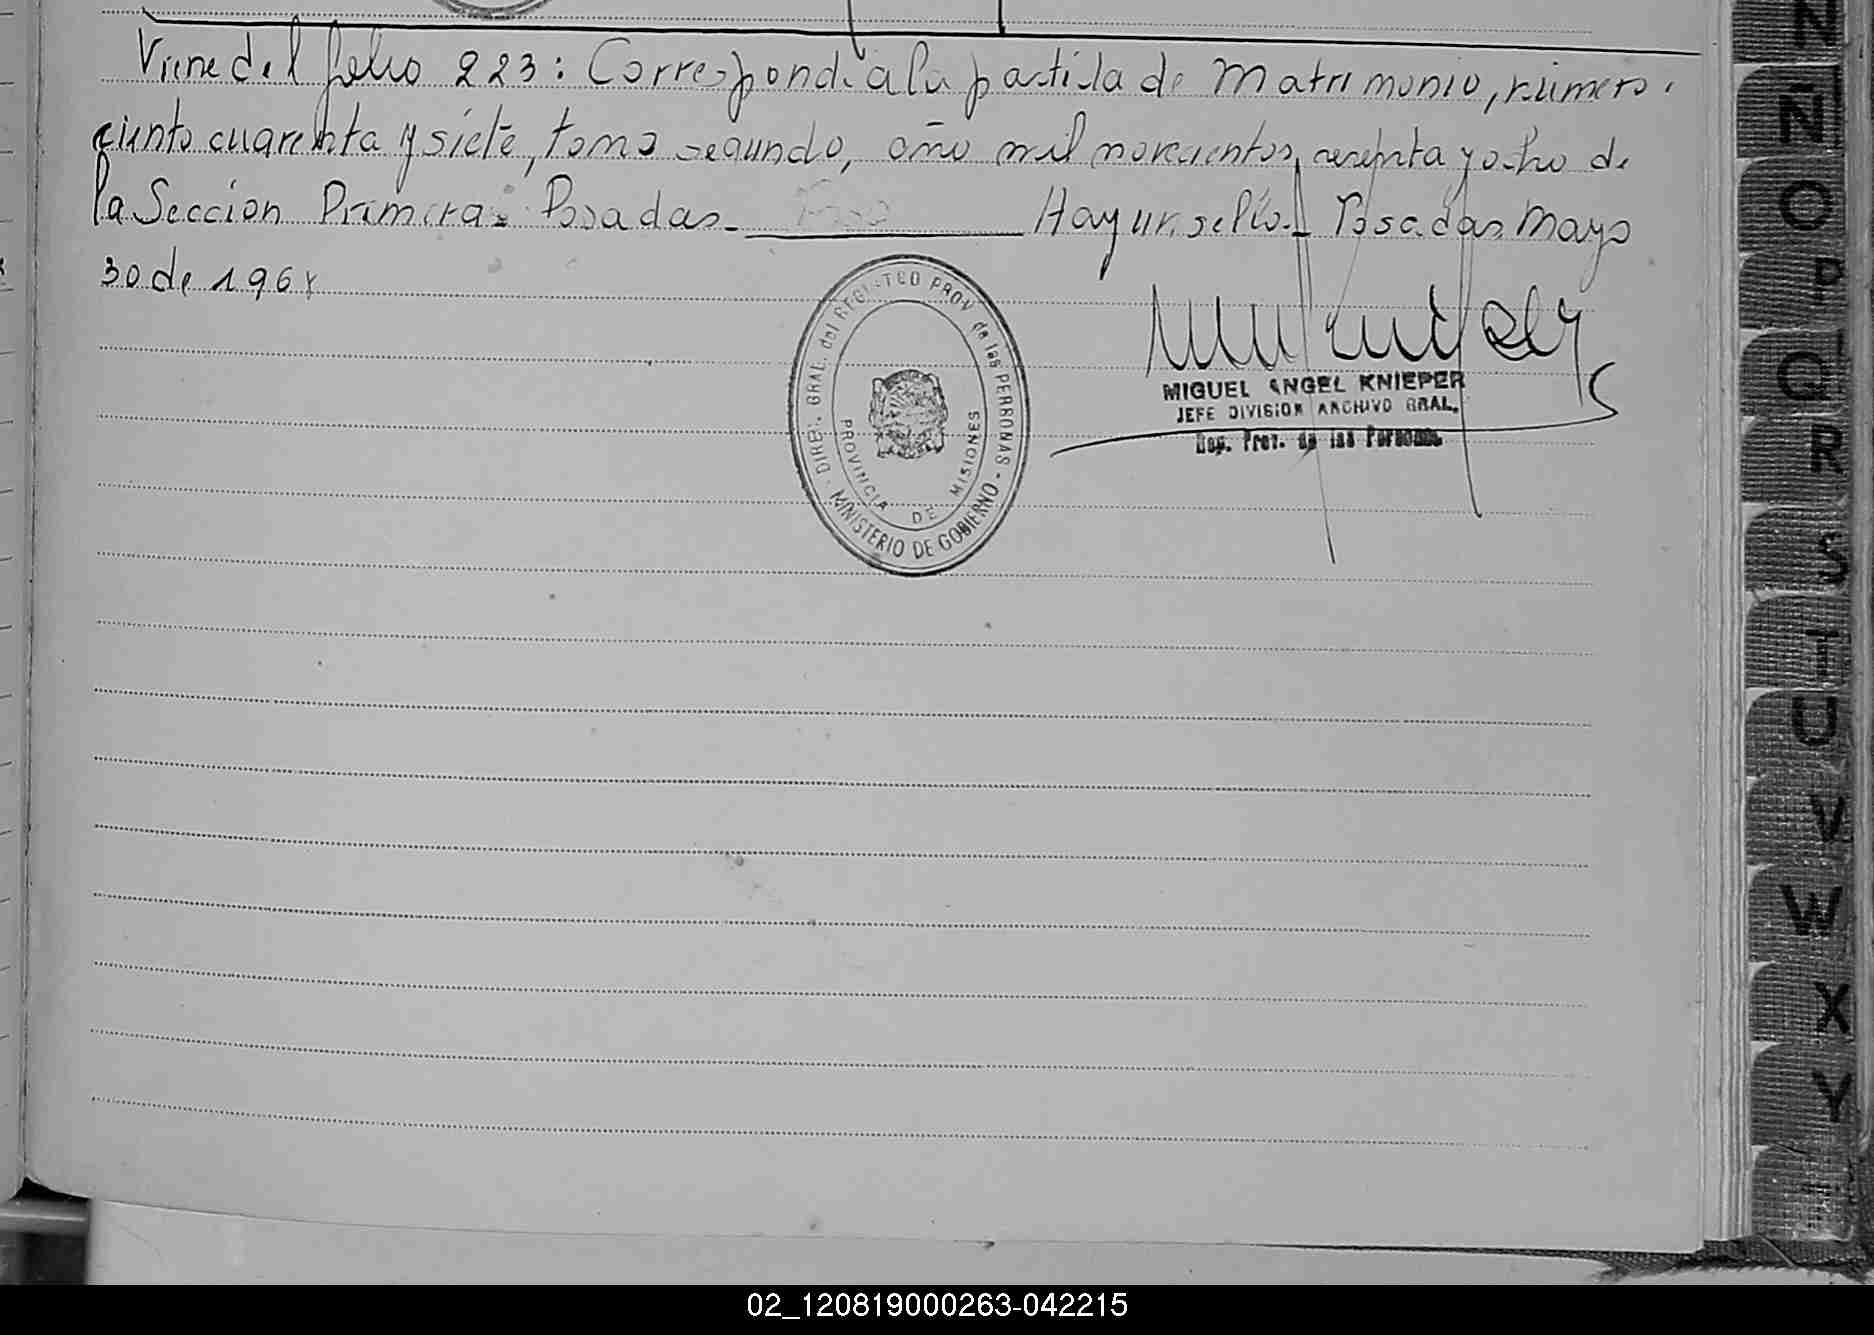 Viene del folio 223: Corresponde a la partida de Matrimonio, número
ciento cuarenta y siete, tomo segundo, año mil novecientos sesenta y ocho de
la Sección Primera: Posadas. Hay un sello. Posadas Mayo
30 de 1968
DIREC. GRAL. del REGISTRO PROV. de las PERSONAS - MINISTERIO DE GOBIERNO -
PROVINCIA DE MISIONES
MIGUEL ANGEL KNIEPER
JEFE DIVISION ARCHIVO GRAL.
Prov. de las Personas
N
Ñ
O
P
Q
R
S
T
U
V
W
X
Y
02_120819000263-042215